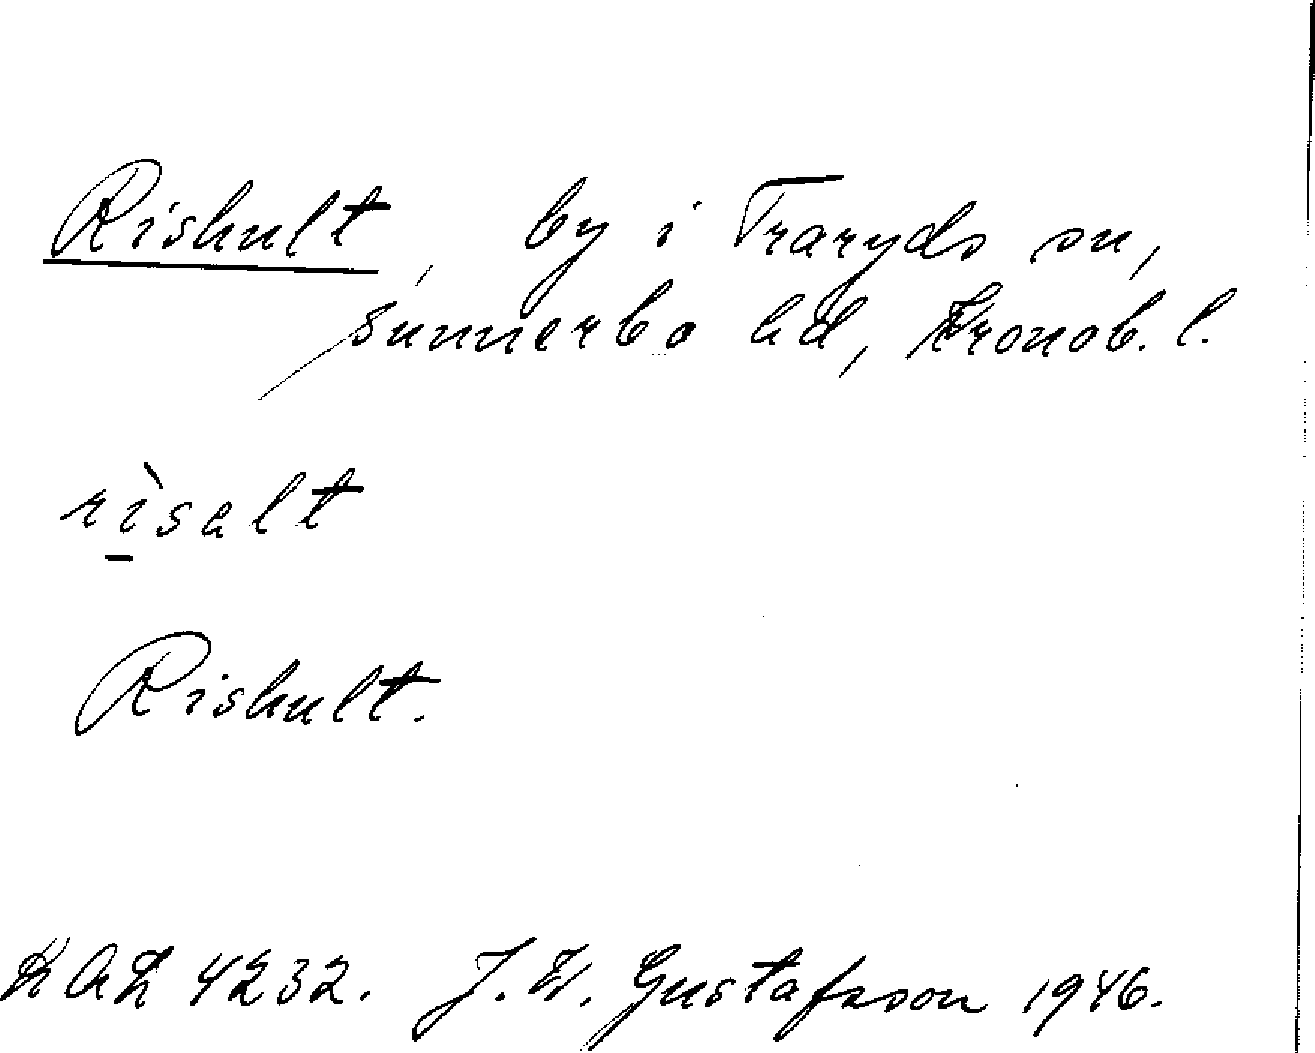 Rishult, by i Traryds sn,
Sunnerbo hd, Kronob. l.
rìsalt
Rishult.
DAL 4232. J. W. Gustafsson 1946.